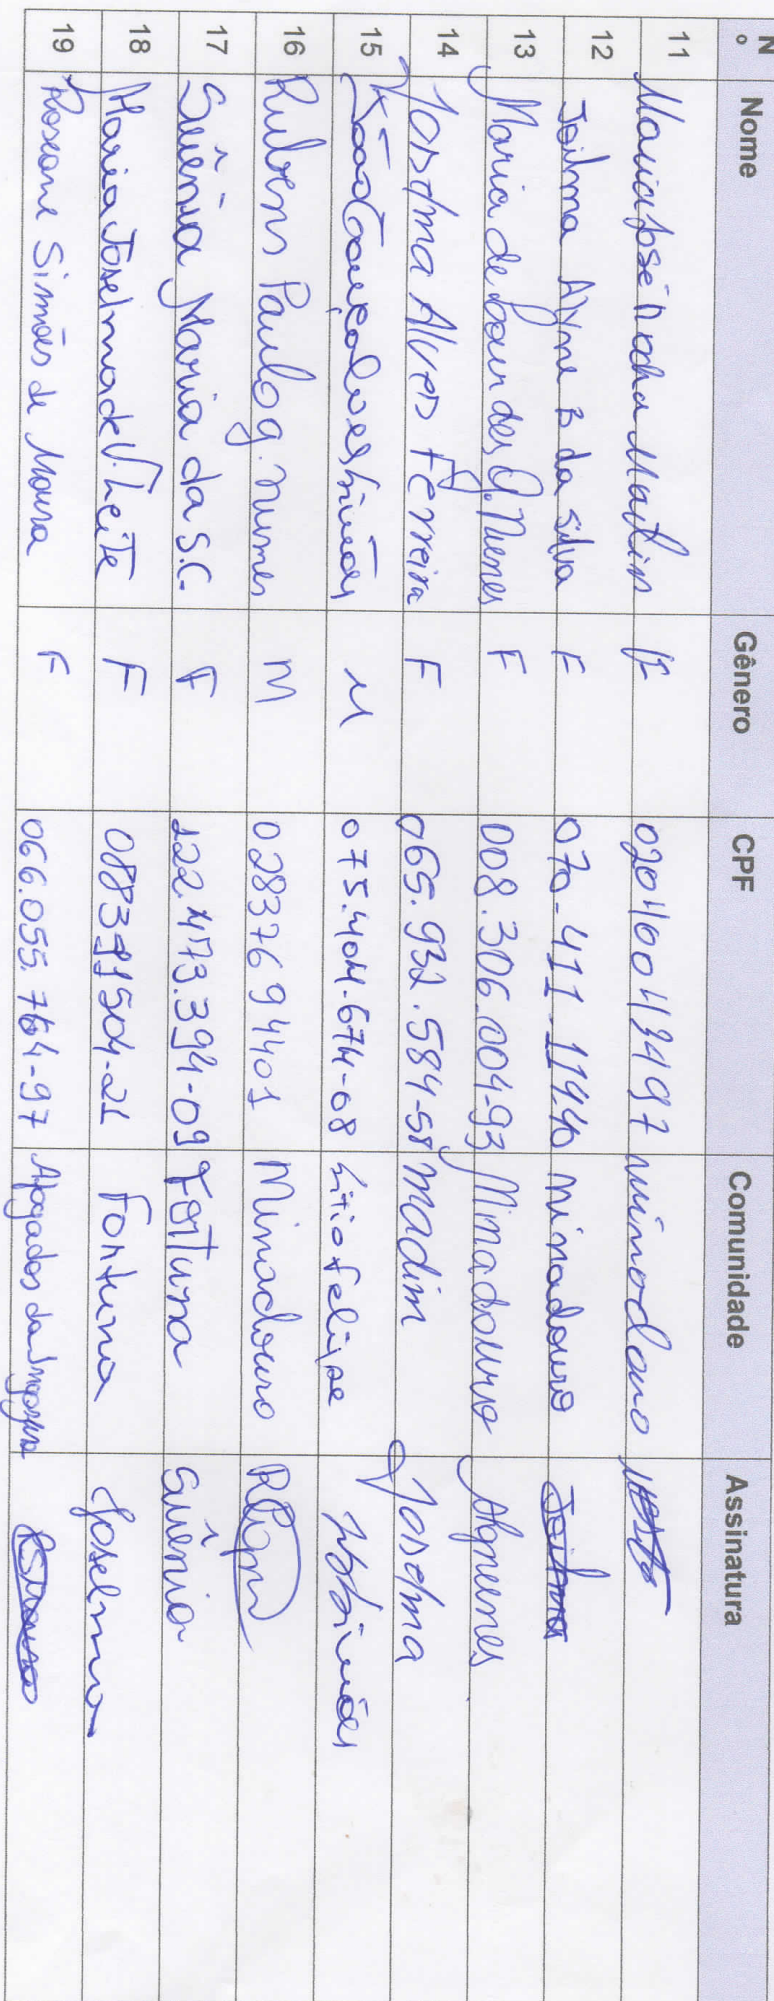 Nº Nome Gênero CPF Comunidade Assinatura
11 Maria José Rocha Martins F minadouro
12 Joilma Alyne B da Silva F 070-411-114.40 minadouro Joilma
13 Maria de Lourdes G. Nunes F 008.306.004-93 Minadouro
14 Joselma Alves Ferreira F 065.932.584-58 madim Joselma
15 Gonçalves Simões M 075.404.674-08 Sitio Felipe
16 Rubens Paulo g. nunes M 02837694401 Minadouro
17 Suênia Maria da S.C. F 122.473.394-09 Fortuna Suênia
18 Maria Joselma de V. Leite F 088391504-21 Fortuna Joselma
19 Roseane Simões de Moura F 066.055.764-97 Afogados da Ingazeira